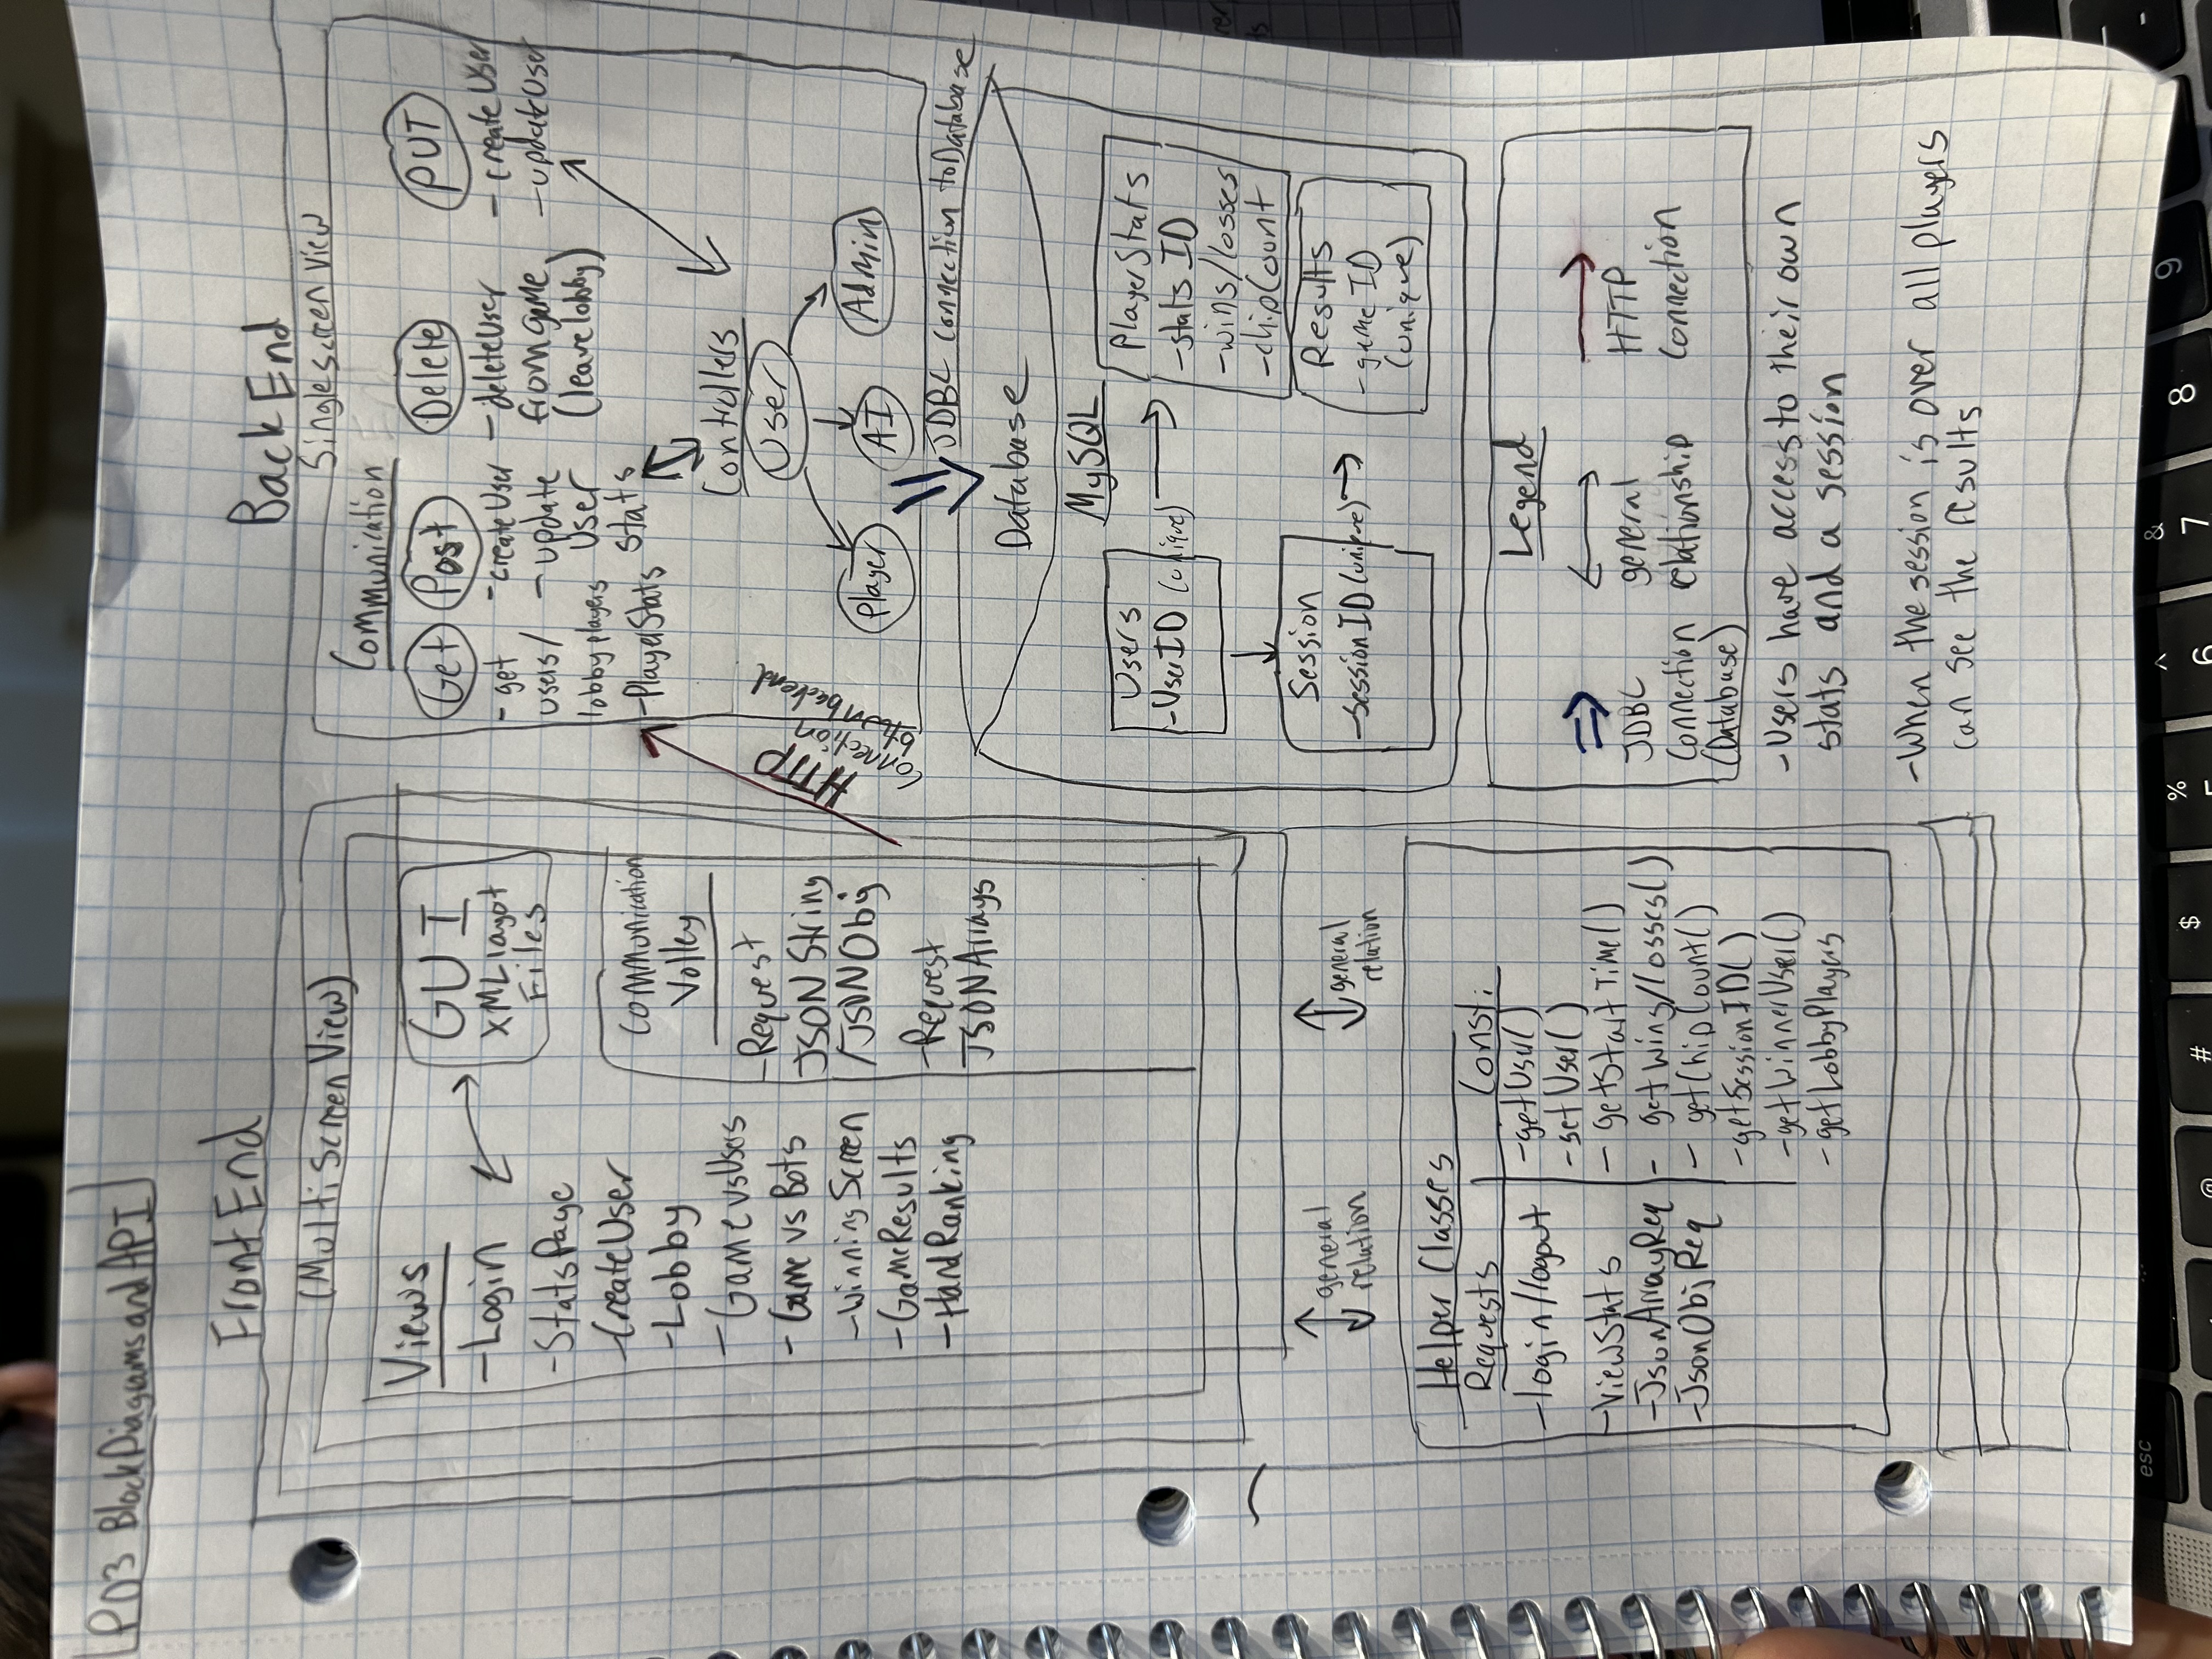 PD3 Block Diagrams and API
Front End
(Multi Screen View)
Views
-Login
-StatsPage
-CreateUser
-Lobby
-GamevsUsers
-Game vs Bots
-Winning Screen
-GameResults
-HandRanking
GUI
XML layot
Files
Communication
Volley
-Request
JSON String
/JSON Obj
-Request
JSON Arrays
general
relation
general
relation
Helper Classes
Requests
-login/logout
-ViewStats
-JsonArrayReq
-JsonObjReq
Const:
-getUser()
-setUser()
-getStartTime()
-getWins/losses()
-getChipCount()
-getSessionID()
-getWinnerUser()
-getLobbyPlayers
HTTP
Connection
backend
Back End
Single screen View
Communication
Get
-get
users/
lobby players
-PlayerStats
Post
-createUser
-update
User
stats
Delete
-deleteUser
from game
(leave lobby)
PUT
-createUser
-updateUser
Controllers
User
Player
AI
Admin
JDBC connection to Database
Database
MySQL
Users
-UserID (unique)
PlayerStats
-stats ID
-wins/losses
-chipCount
Session
-Session ID (unique)
Results
-game ID
(unique)
Legend
JDBC
Connection
(Database)
general
relationship
HTTP
Connection
-Users have access to their own
stats and a session
-When the session is over all players
can see the results
esc
@
#
$
%
5
^
6
&
7
8
9